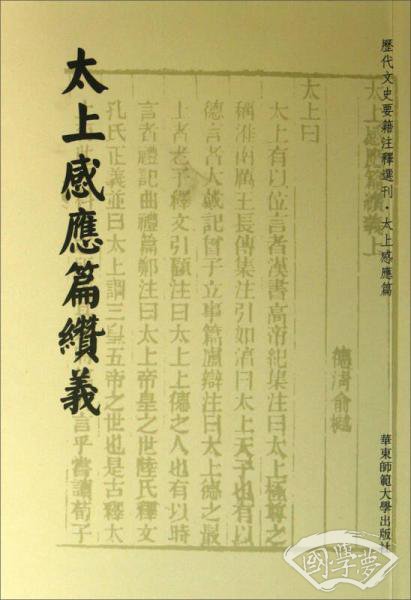 太上感應篇纘義
歷代文史要籍注釋選刊・太上感應篇
華東師範大學出版社
太上感應篇纘義上
德清俞樾
太上曰
太上有以位言者漢書高帝紀集注曰太上極尊之
稱淮南厲王長傳集注引如淳曰太上天子也有以
德言者大戴記曾子立事篇盧辯注曰太上德之最
上者老子釋文引顧注曰太上上德之人也有以時
言者禮記曲禮篇鄭注曰太上帝皇之世陸氏釋文
孔氏正義並曰太上謂三皇五帝之世也是古釋太
言乎嘗讀荀子
國學夢